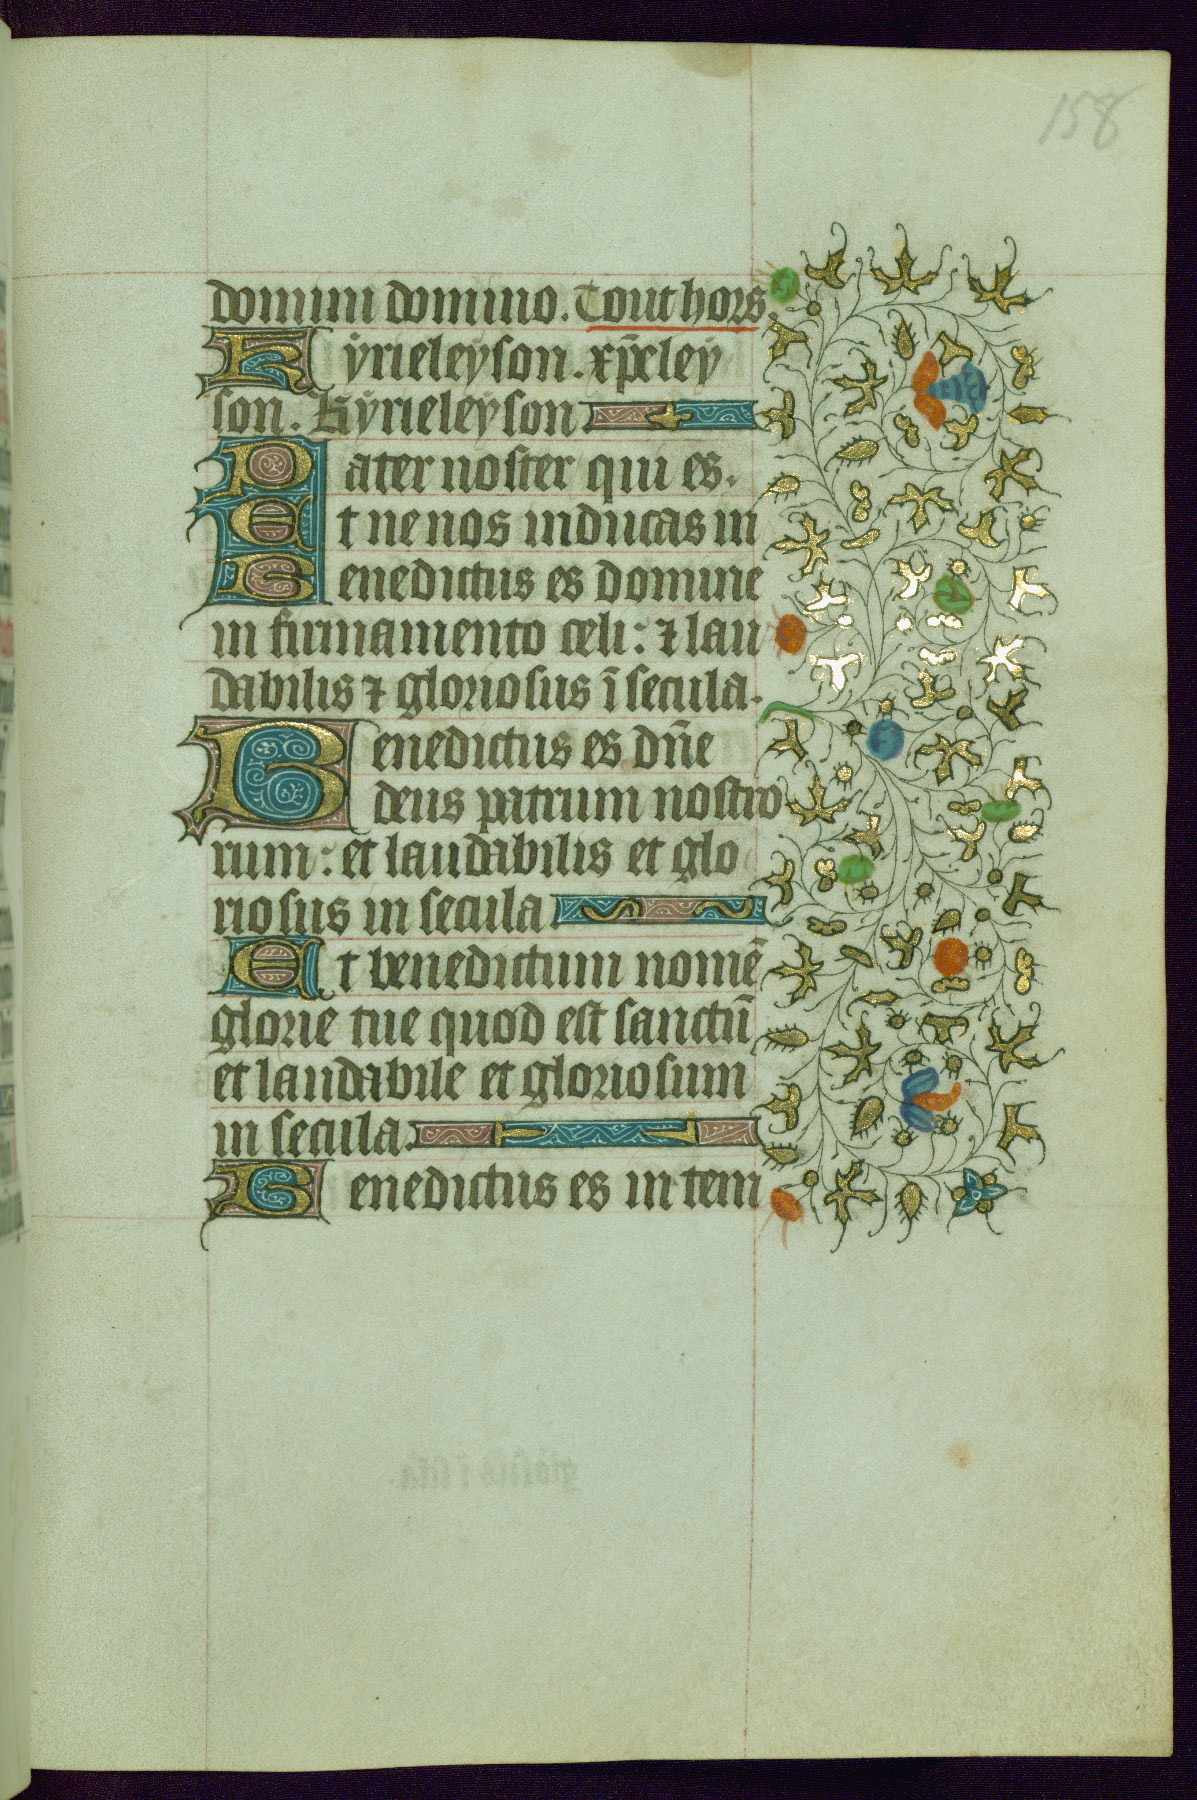 158
domini domino. Tout hors.
Kyrieleyson. xp̄eley
son. Kyrieleyson
Pater noster qui es.
Et ne nos inducas in
Benedictus es domine
in firmamento celi: ⁊ lau
dabilis ⁊ gloriosus ī secula.
Benedictus es dn̄e
deus patrum nostro
rum: et laudabilis et glo
riosus in secula
Et benedictum nomē
glorie tue quod est sanctū
et laudabile et gloriosum
in secula.
Benedictus es in tem